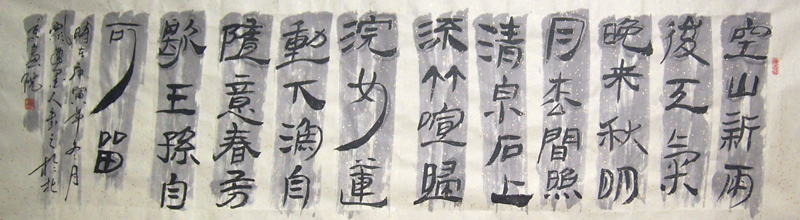 空山新雨
後天氣
晚来秋明
月松間照
清泉石上
流竹喧歸
浣女蓮
動下漁舟
隨意春芳
歇王孫自
可留
時在庚寅年冬月
墨人於北
京画院